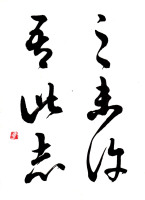 之未
吾此志